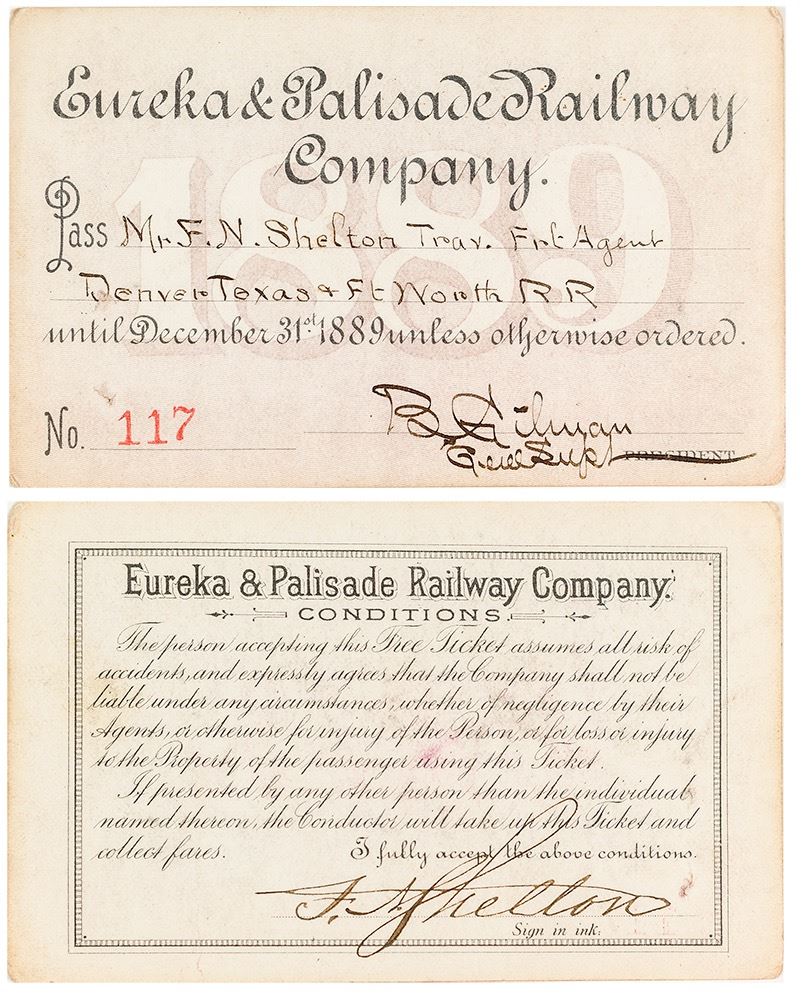 Eureka & Palisade Railway
Company.
1889
Pass Mr F. N. Shelton Trav. Frt Agent
Denver Texas & Ft Worth R R
until December 31st 1889 unless otherwise ordered.
No. 117
B. Gilman
Genl Supt PRESIDENT
Eureka & Palisade Railway Company.
CONDITIONS.
The person accepting this Free Ticket assumes all risk of
accidents, and expressly agrees that the Company shall not be
liable under any circumstances, whether of negligence by their
Agents, or otherwise for injury of the Person, or for loss or injury
to the Property of the passenger using this Ticket.
If presented by any other person than the individual
named thereon, the Conductor will take up this Ticket and
collect fares. I fully accept the above conditions.
F. N. Shelton
Sign in ink.